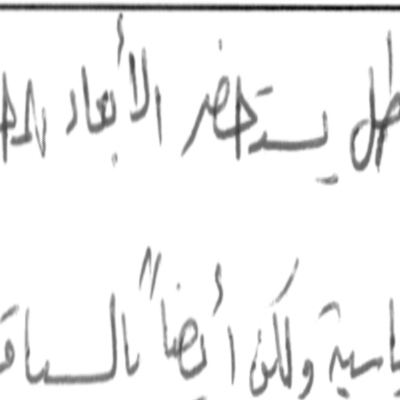 ظل يستحضر الأبعاد
ياسية ولكن أيضاً بالسياق